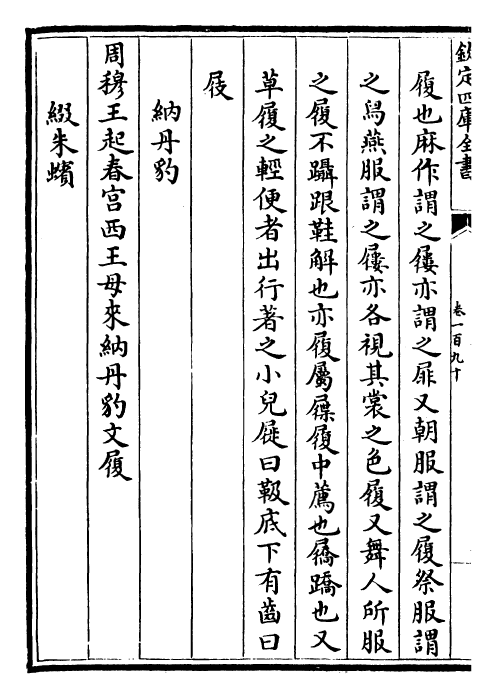 欽定四庫全書
卷一百九十
履也麻作謂之屨亦謂之屝又朝服謂之履祭服謂
之舄燕服謂之屨亦各視其裳之色履又舞人所服
之履不躡跟鞋解也亦履屬屧履中薦也屩蹻也又
草履之輕便者出行著之小兒屣曰靸底下有齒曰
屐
納丹豹
周穆王起春宮西王母來納丹豹文履
綴朱蠙